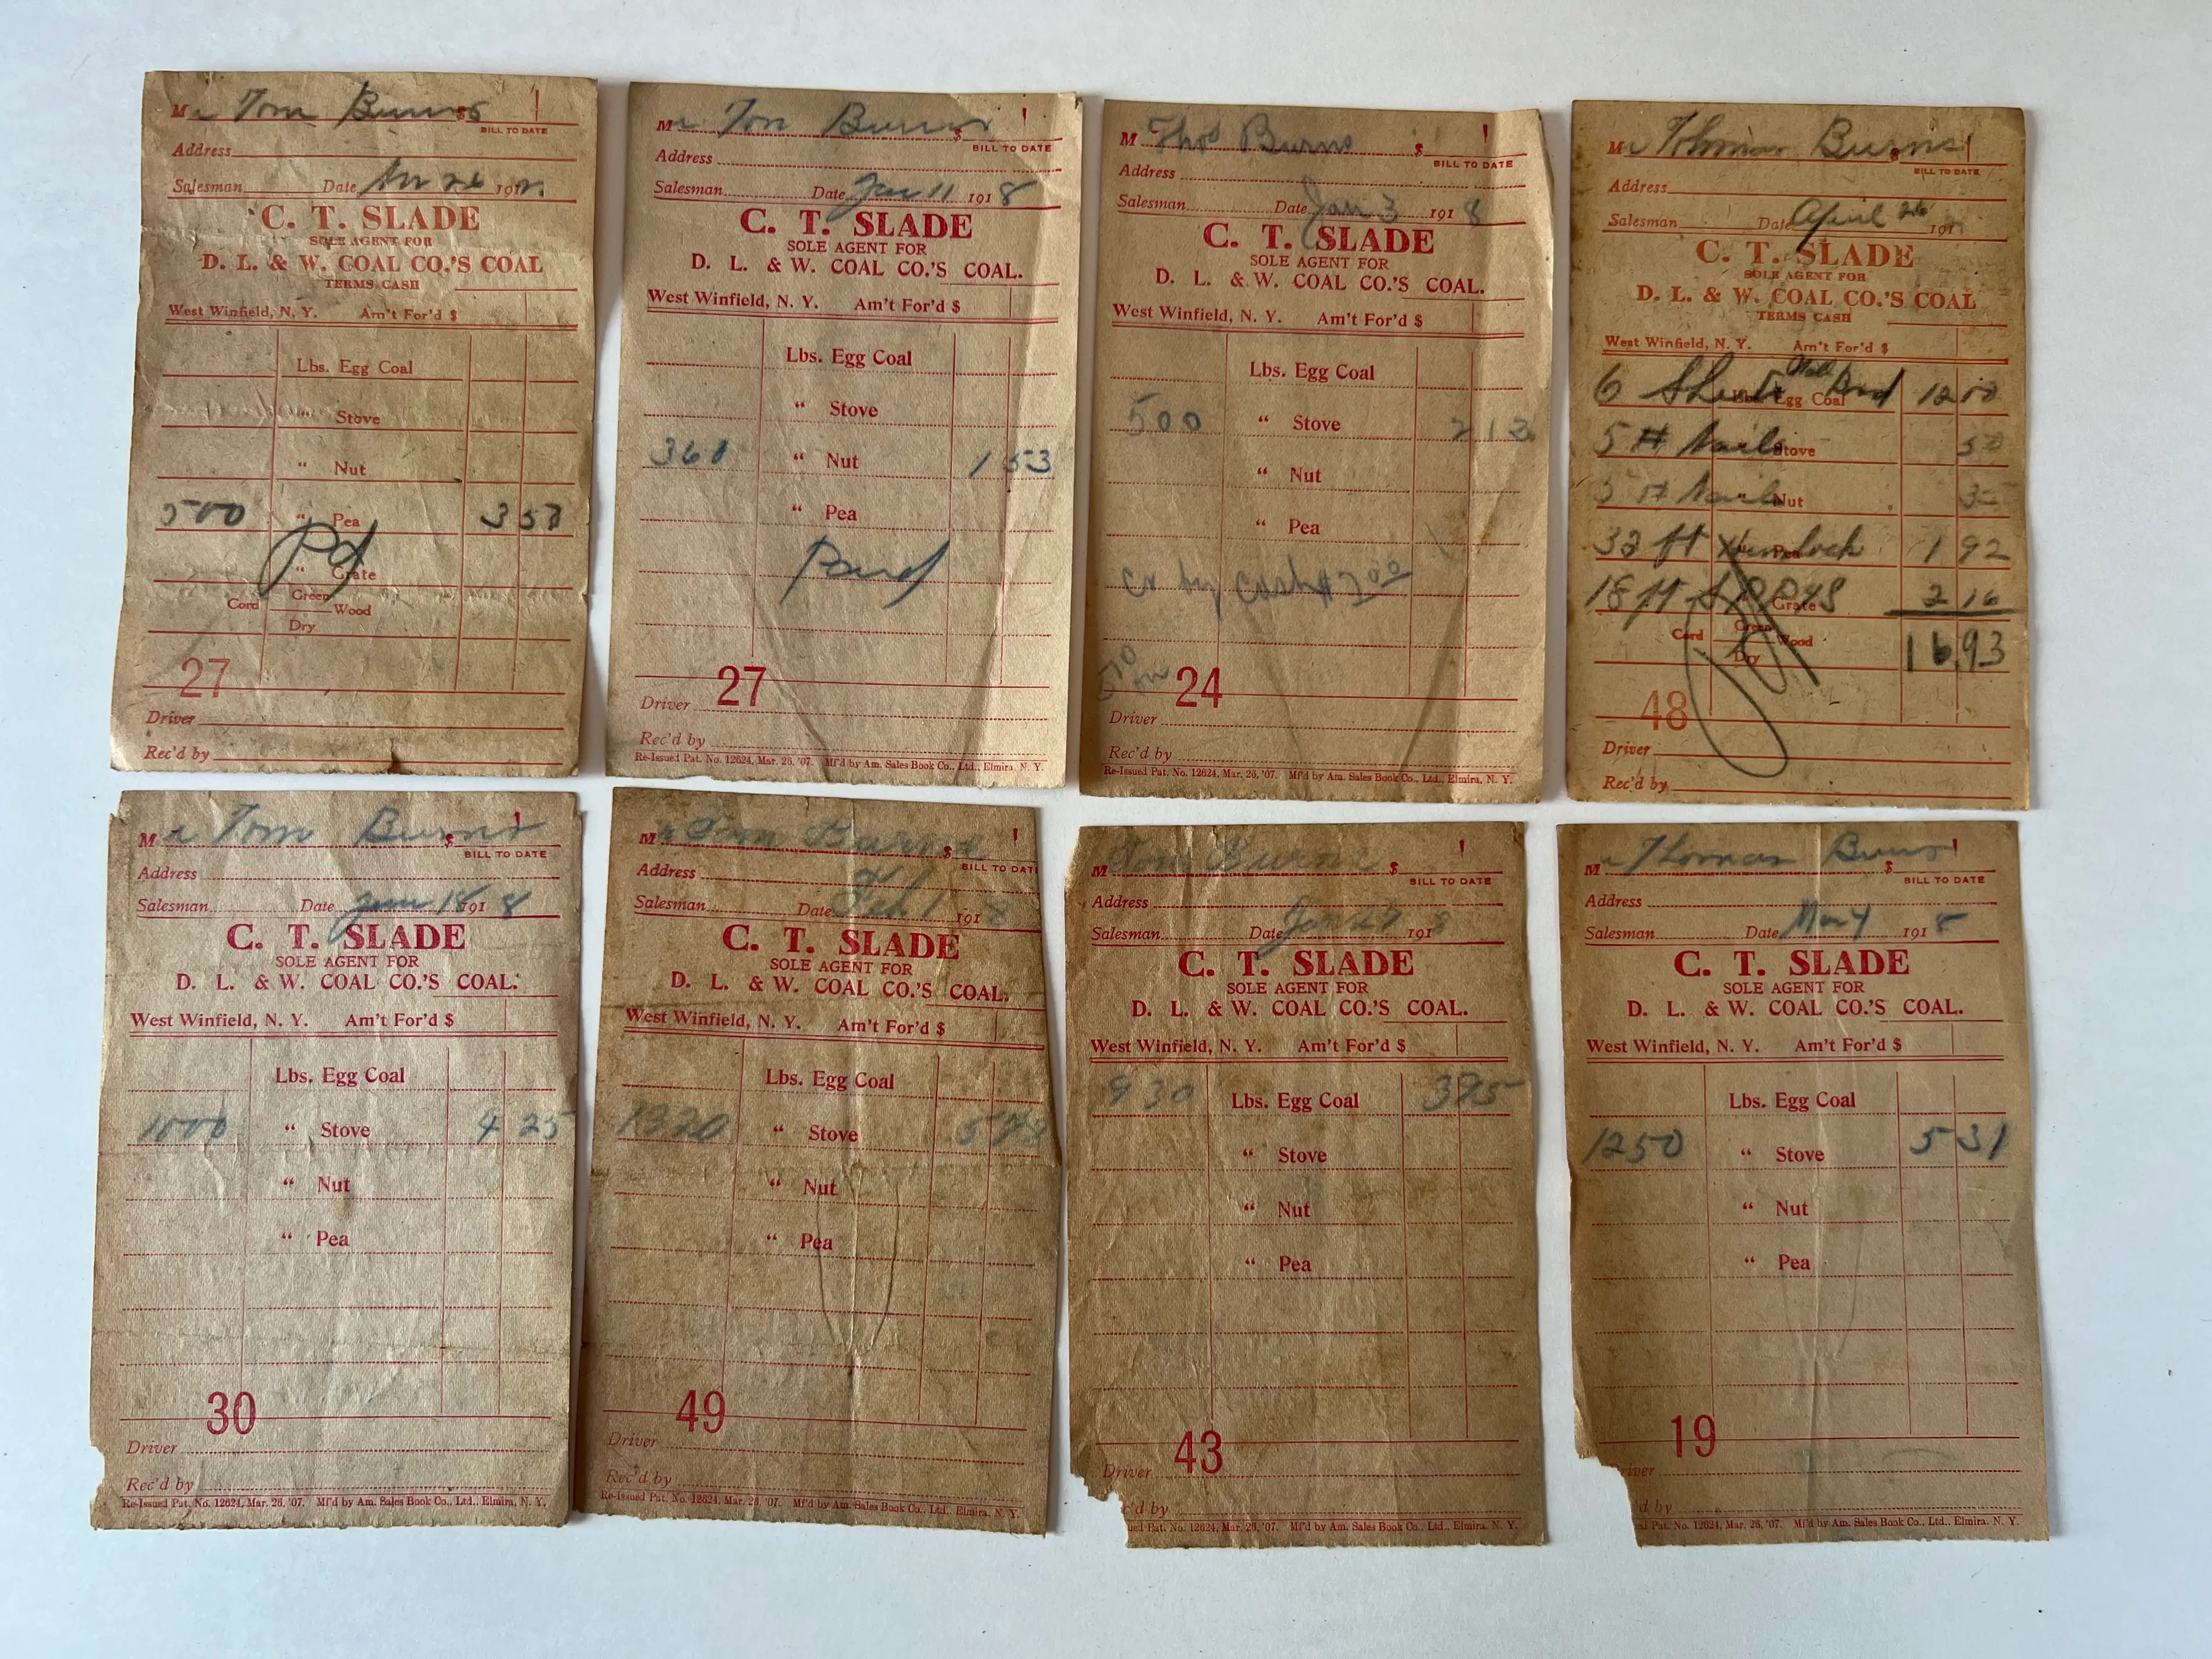 Mr Tom Burns $
BILL TO DATE
Address
Salesman Date 26 191
C. T. SLADE
SOLE AGENT FOR
D. L. & W. COAL CO.'S COAL
TERMS CASH
West Winfield, N. Y. Am't For'd $
Lbs. Egg Coal
" Stove
" Nut
500 " Pea 3 50
Pd
" Grate
Cord Green Wood
Dry
27
Driver
Rec'd by
Mr Tom Burns $
BILL TO DATE
Address
Salesman Date Jan 11 1918
C. T. SLADE
SOLE AGENT FOR
D. L. & W. COAL CO.'S COAL.
West Winfield, N. Y. Am't For'd $
Lbs. Egg Coal
" Stove
360 " Nut 1 53
" Pea
Paid
27
Driver
Rec'd by
Re-Issued Pat. No. 12624, Mar. 26, '07. Mf'd by Am. Sales Book Co., Ltd., Elmira, N. Y.
M Thos Burns $
BILL TO DATE
Address
Salesman Date Jan 3 1918
C. T. SLADE
SOLE AGENT FOR
D. L. & W. COAL CO.'S COAL.
West Winfield, N. Y. Am't For'd $
Lbs. Egg Coal
500 " Stove 2 13
" Nut
" Pea
cr by Cash $
24
Driver
Rec'd by
Re-Issued Pat. No. 12624, Mar. 26, '07. Mf'd by Am. Sales Book Co., Ltd., Elmira, N. Y.
Mr Thomas Burns $
BILL TO DATE
Address
Salesman Date April 26 191
C. T. SLADE
SOLE AGENT FOR
D. L. & W. COAL CO.'S COAL
TERMS CASH
West Winfield, N. Y. Am't For'd $
6 Sheets Wall Brd Lbs. Egg Coal 12 00
5 # Nails Stove 50
5 # Nails Nut 35
32 ft Hemlock Pea 1 92
18 ft Grate 2 16
Cord Green Wood 16 93
Dry
48
Driver
Rec'd by
Mr Tom Burns $
BILL TO DATE
Address
Salesman Date Jan 18 1918
C. T. SLADE
SOLE AGENT FOR
D. L. & W. COAL CO.'S COAL.
West Winfield, N. Y. Am't For'd $
Lbs. Egg Coal
1000 " Stove 4 25
" Nut
" Pea
30
Driver
Rec'd by
Re-Issued Pat. No. 12624, Mar. 26, '07. Mf'd by Am. Sales Book Co., Ltd., Elmira, N. Y.
Mr Tom Burns $
BILL TO DATE
Address
Salesman Date Feb 1 1918
C. T. SLADE
SOLE AGENT FOR
D. L. & W. COAL CO.'S COAL.
West Winfield, N. Y. Am't For'd $
Lbs. Egg Coal
1320 " Stove
" Nut
" Pea
49
Driver
Rec'd by
Re-Issued Pat. No. 12624, Mar. 26, '07. Mf'd by Am. Sales Book Co., Ltd., Elmira, N. Y.
M Tom Burns $
BILL TO DATE
Address
Salesman Date Jan 1918
C. T. SLADE
SOLE AGENT FOR
D. L. & W. COAL CO.'S COAL.
West Winfield, N. Y. Am't For'd $
930 Lbs. Egg Coal 3 95
" Stove
" Nut
" Pea
43
Driver
c'd by
ued Pat. No. 12624, Mar. 26, '07. Mf'd by Am. Sales Book Co., Ltd., Elmira, N. Y.
Mr Thomas Burns $
BILL TO DATE
Address
Salesman Date Mar 4 1918
C. T. SLADE
SOLE AGENT FOR
D. L. & W. COAL CO.'S COAL.
West Winfield, N. Y. Am't For'd $
Lbs. Egg Coal
1250 " Stove 5 31
" Nut
" Pea
19
river
d by
Pat. No. 12624, Mar. 26, '07. Mf'd by Am. Sales Book Co., Ltd., Elmira, N. Y.